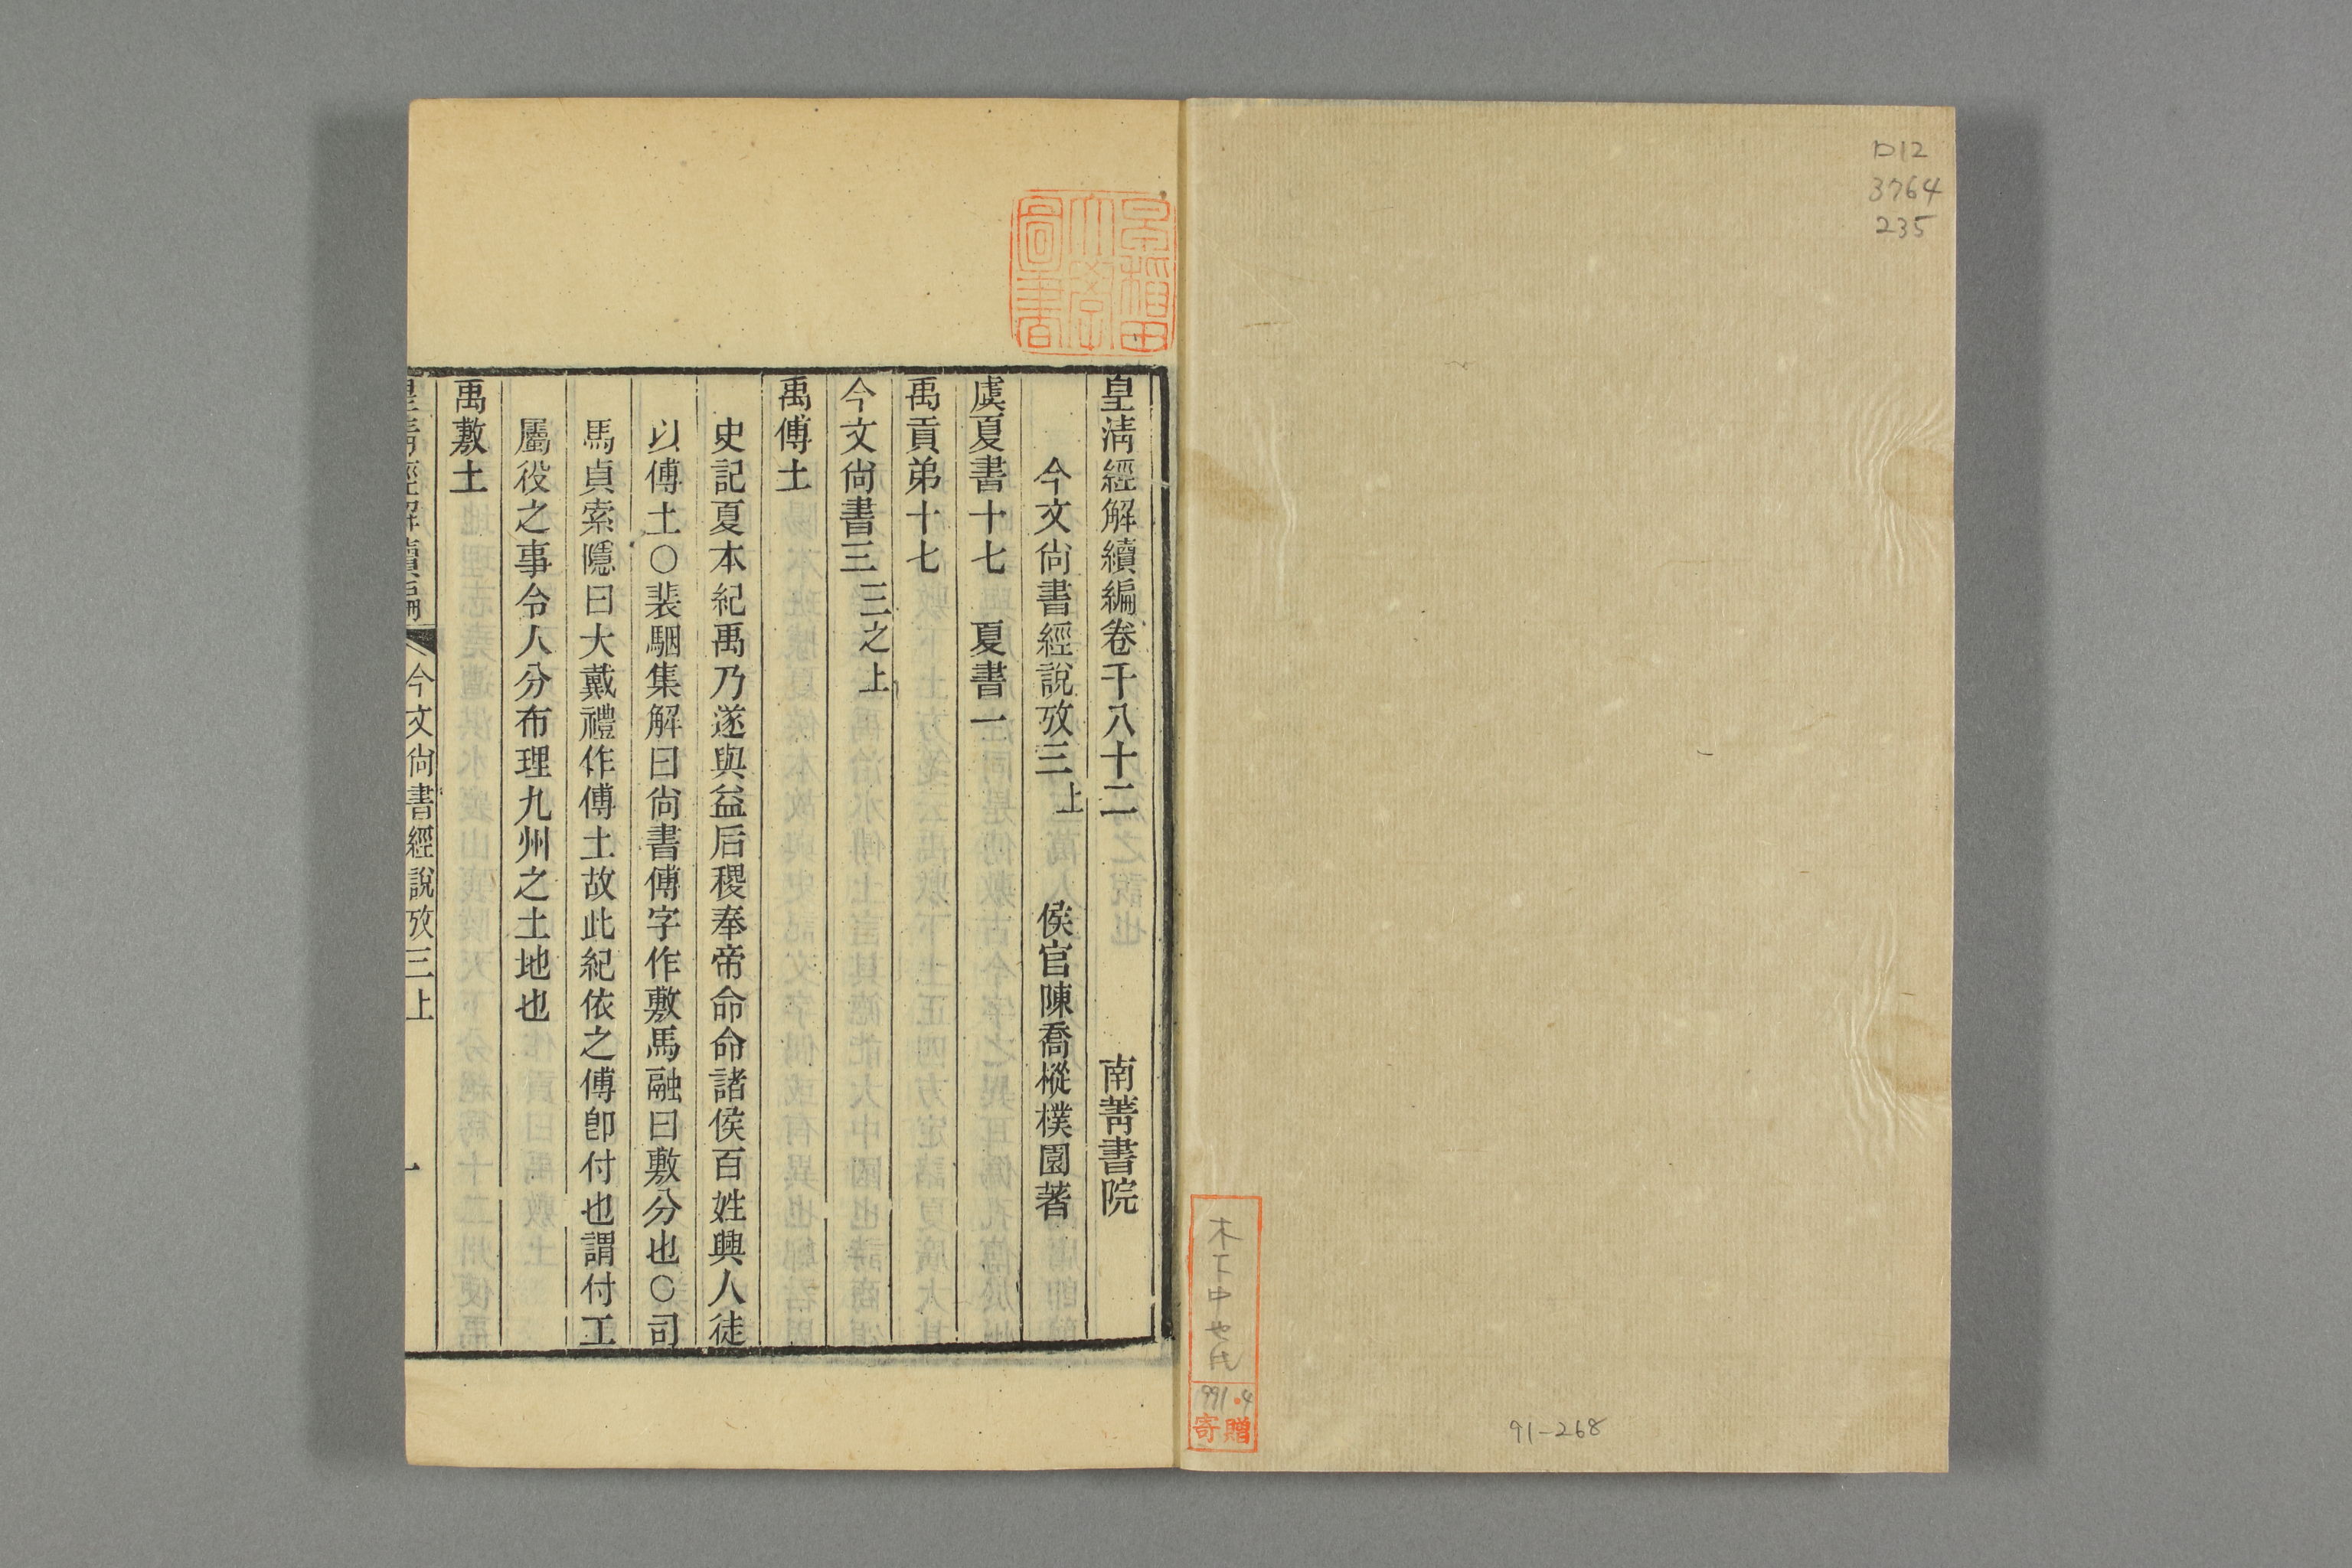 D12
3764
235
木下中也氏
991.4
寄贈
91-268
早稲田大學圖書
皇淸經解續編卷千八十二　南菁書院
今文尙書經說攷三上　侯官陳喬樅樸園著
虞夏書十七　夏書一
禹貢弟十七
今文尙書三　三之上
禹傅土
史記夏本紀禹乃遂與益后稷奉帝命命諸侯百姓興人徒
以傅土○裴駰集解曰尙書傅字作敷馬融曰敷分也○司
馬貞索隱曰大戴禮作傅土故此紀依之傅卽付也謂付工
屬役之事令人分布理九州之土地也
禹敷土
皇淸經解續編　今文尙書經說攷三上　一